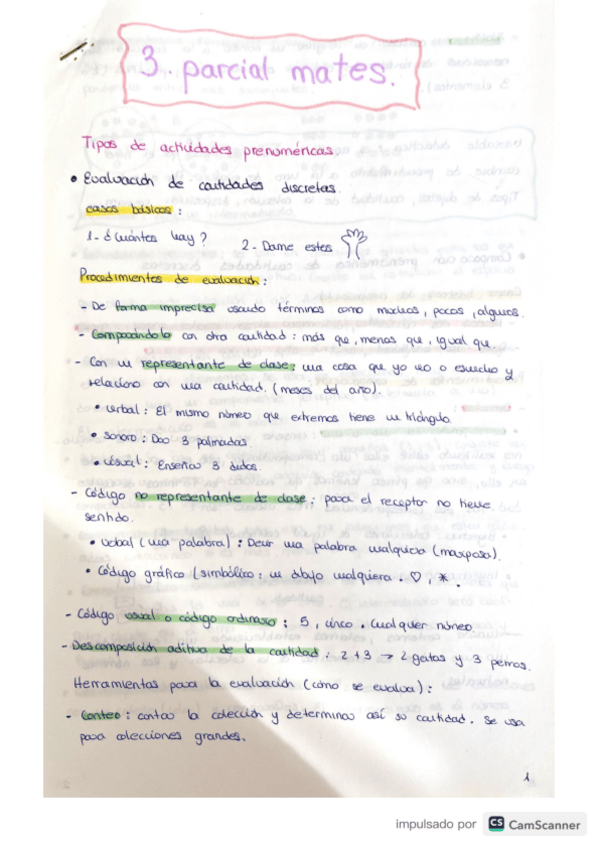 3. parcial mates.
Tipos de actividades prenuméricas.
• Evaluación de cantidades discretas.
casos básicos:
1- ¿Cuántos hay? 2- Dame estos
Procedimientos de evaluación:
- De forma imprecisa usando términos como muchos, pocos, algunos.
- Comparándolo con otra cantidad: más que, menos que, igual que.
- Con un representante de clase: una cosa que yo veo o escucho y
relaciono con una cantidad. (meses del año).
• verbal: El mismo número que extremos tiene un triángulo.
• sonoro: Doo 3 palmadas
• visual: Enseñar 3 dedos.
- Código no representante de clase: para el receptor no tiene
sentido.
• verbal (una palabra): Decir una palabra cualquiera (mariposa).
• Código gráfico (simbólico: un dibujo cualquiera. ♡, *.
- Código usual o código ordinario: 5, cinco. Cualquier número
- Descomposición aditiva de la cantidad: 2+3 → 2 gatos y 3 perros.
Herramientas para la evaluación (cómo se evalua):
- Conteo: contar la colección y determinar así su cantidad. Se usa
para colecciones grandes.
1
impulsado por CS CamScanner